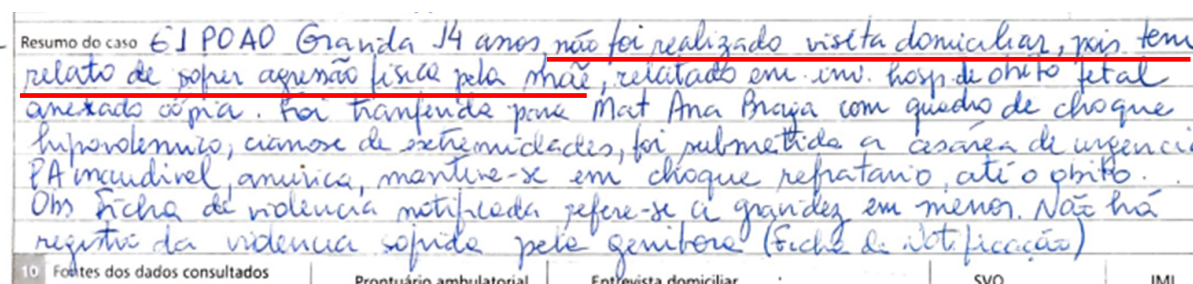 Resumo do caso G1 P0A0 Gravida 14 anos não foi realizado visita domiciliar, pois tem
relato de sofrer agressão fisica pela mãe, relatado em inv. hosp. de obito fetal
anexado cópia. Foi tranferida para Mat Ana Braga com quadro de choque
hipovolemico, cianose de extremidades, foi submetida a cesárea de urgencia
PA inaudivel, anurica, manteve-se em choque refratario, até o obito.
Obs Ficha de violencia notificada refere-se a gravidez em menor. Não há
registro da violencia sofrida pela genitora (Ficha de Notificação)
10 Fontes dos dados consultados
Prontuário ambulatorial Entrevista domiciliar SVO IML